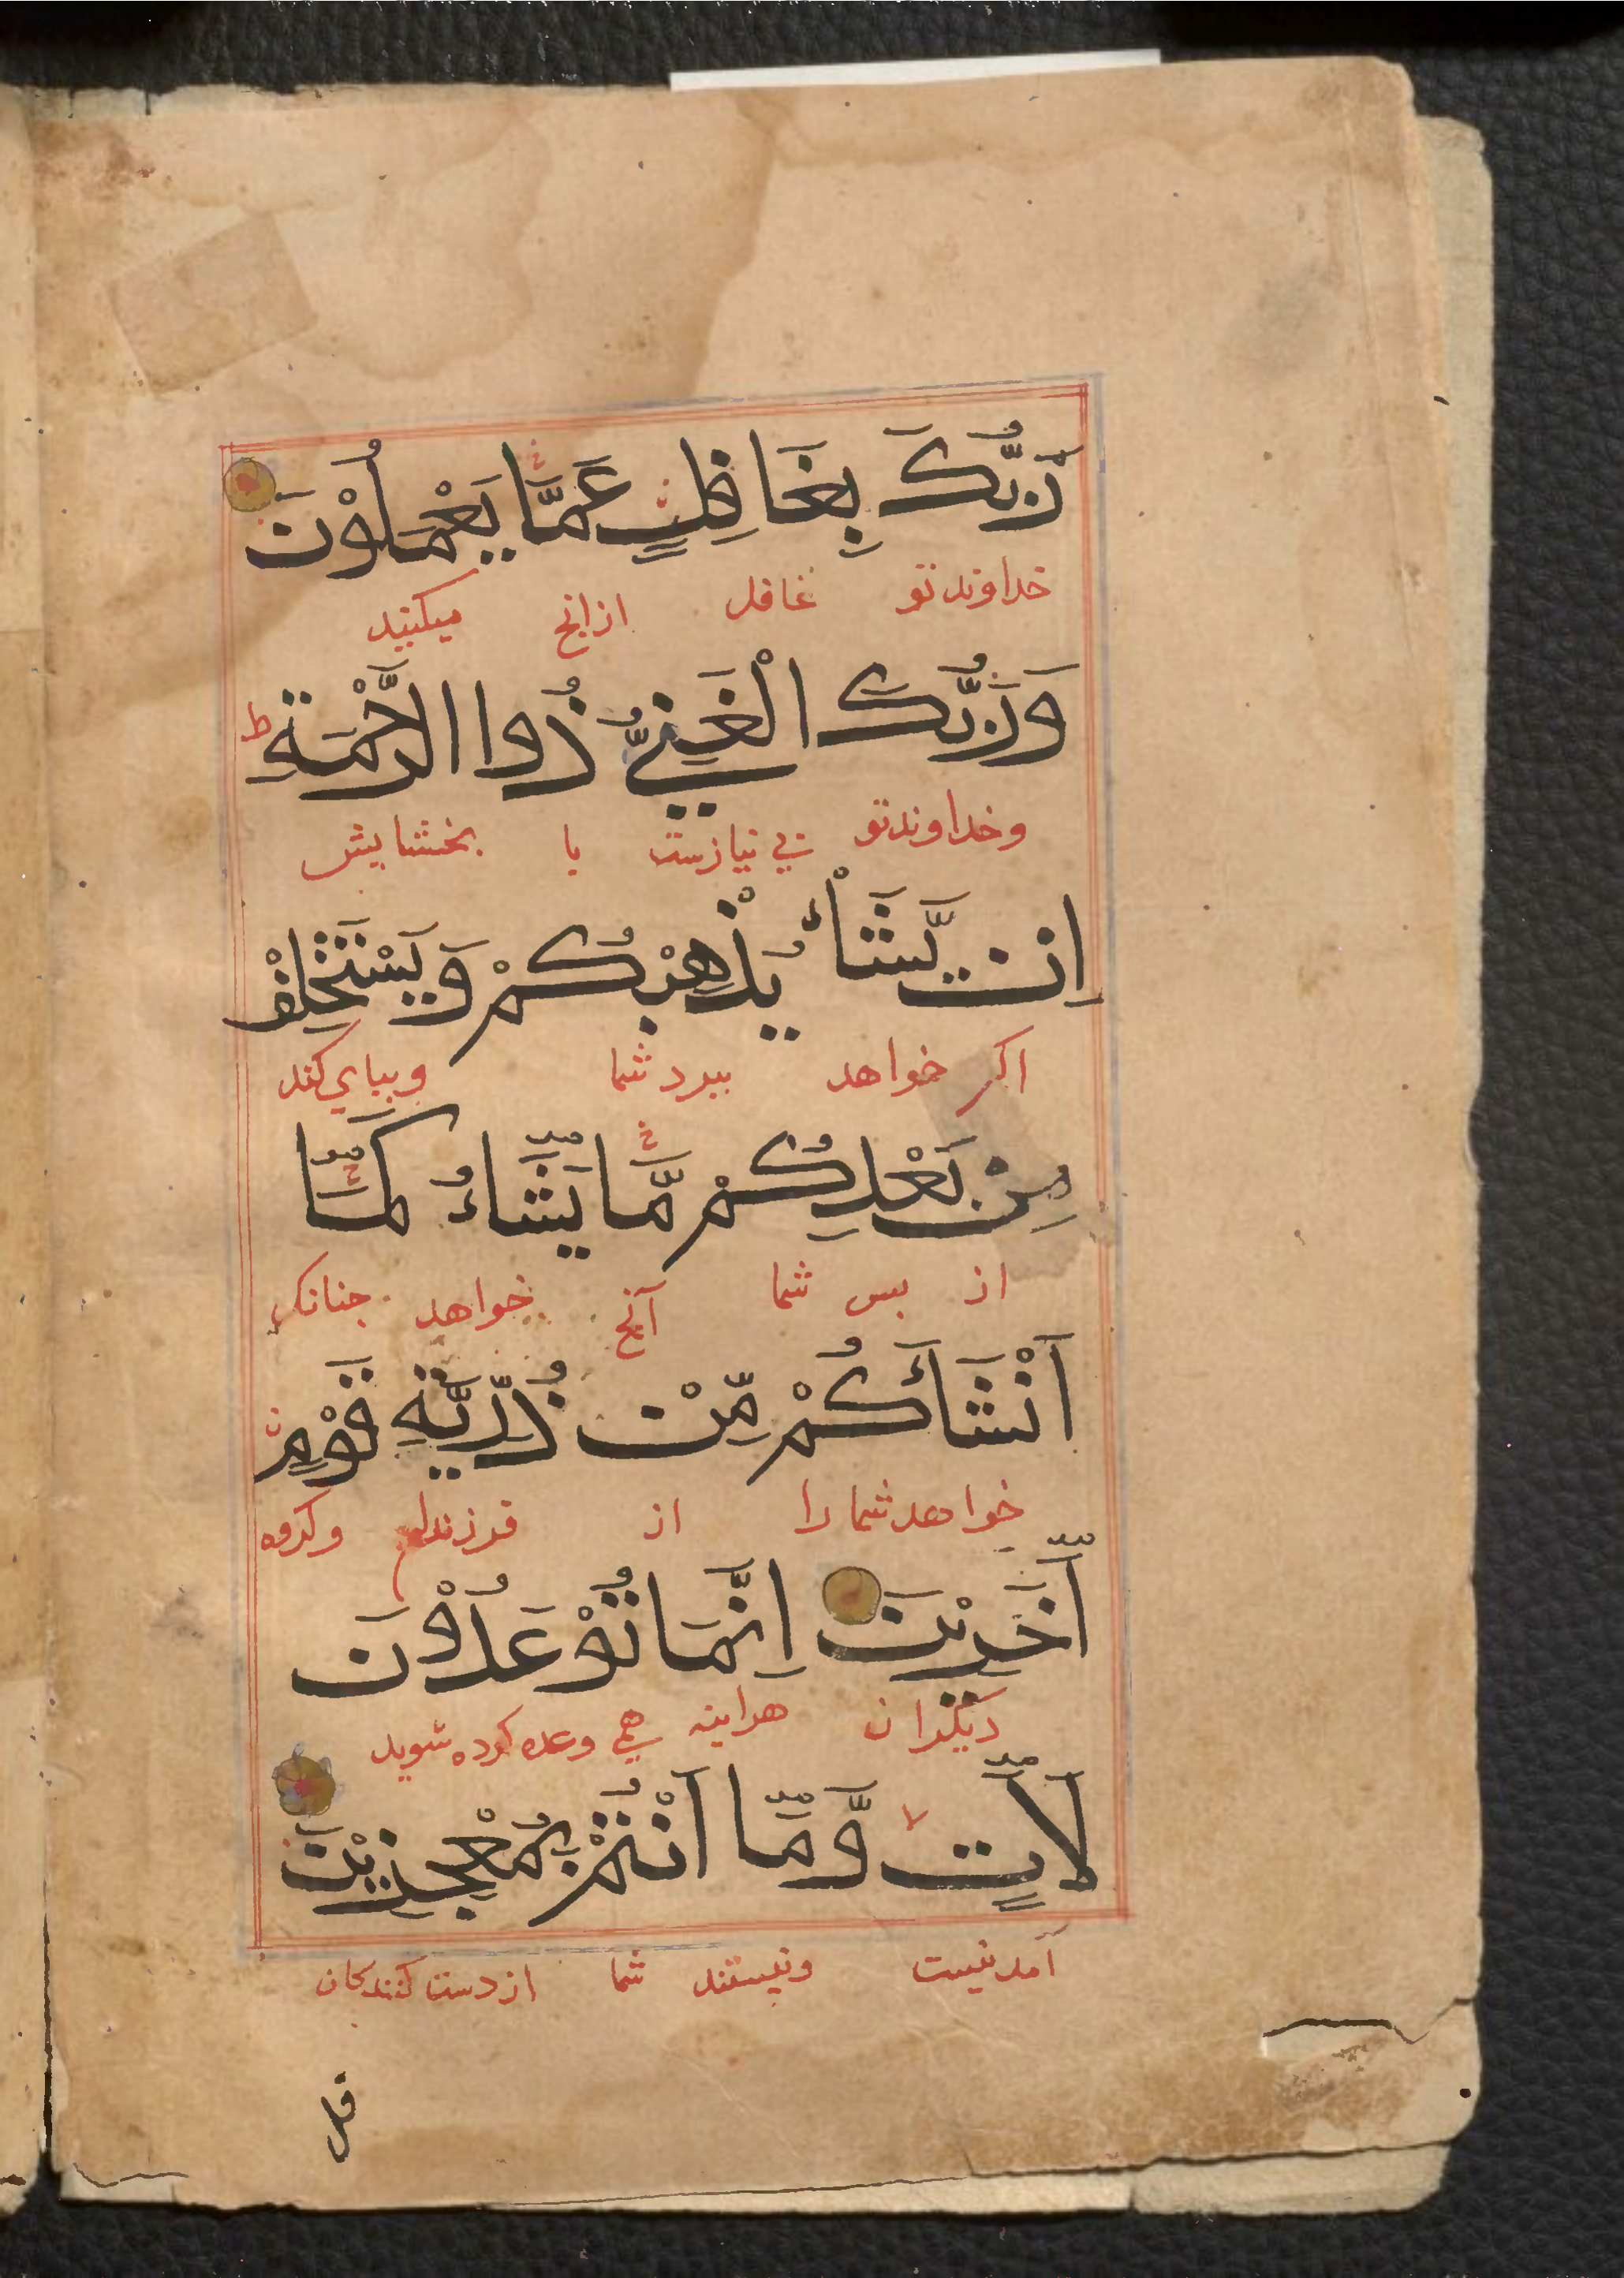 رَبُّكَ بِغَافِلٍ عَمَّا يَعْمَلُوْنَ
خداوند تو غافل از انچ میکنید
وَرَبُّكَ الْغَنِيُّ ذُوا الرَّحْمَةِ ط
و خداوند تو بی نیازست با بخشایش
اِنْ يَّشَأْ يُذْهِبْكُمْ وَيَسْتَخْلِفْ
اکر خواهد ببرد شما و بپای کند
مِنْ بَعْدِكُمْ مَّا يَشَآءُ كَمَآ
از بس شما آنچ خواهد جنانک
اَنْشَأَكُمْ مِّنْ ذُرِّيَّةِ قَوْمٍ
خواهد شما را از فرزندان و کروه
اٰخَرِيْنَ اِنَّمَا تُوْعَدُوْنَ
دیکران هراینه هی وعده کرده شوید
لَاٰتٍ لا وَّمَآ اَنْتُمْ بِمُعْجِزِيْنَ
آمدنیست و نیستند شما از دست کنندکان
قل